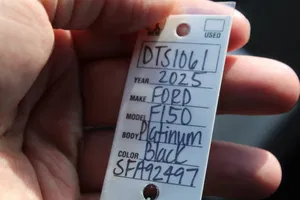 USED
DTS1061
YEAR 2025
MAKE FORD
MODEL F150
BODY Platinum
COLOR Black
SFA92497